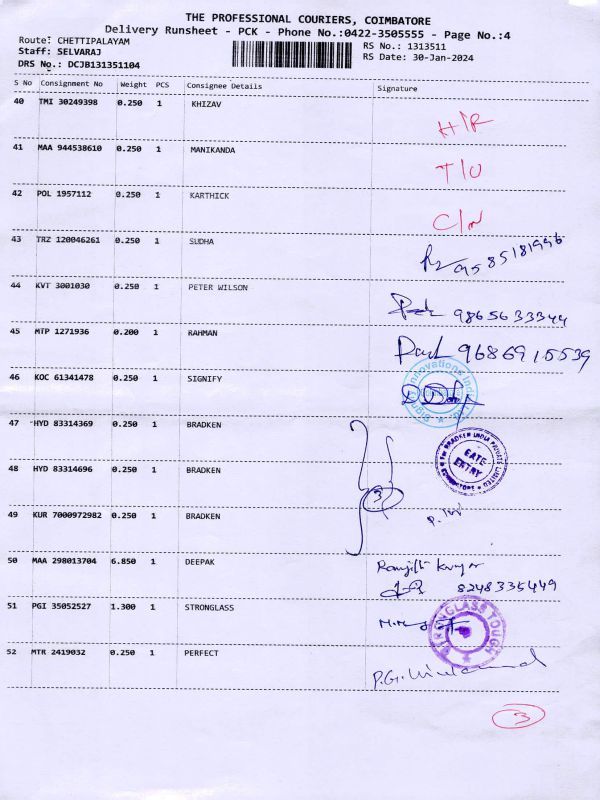 THE PROFESSIONAL COURIERS, COIMBATORE
Delivery Runsheet - PCK - Phone No.:0422-3505555 - Page No.:4
Route: CHETTIPALAYAM
Staff: SELVARAJ
DRS No.: DCJB131351104
RS No.: 1313511
RS Date: 30-Jan-2024
S No Consignment No Weight PCS Consignee Details Signature
40 TMI 30249398 0.250 1 KHIZAV
H/R
41 MAA 944538610 0.250 1 MANIKANDA
T/U
42 POL 1957112 0.250 1 KARTHICK
43 TRZ 120046261 0.250 1 SUDHA
9585181996
44 KVT 3001030 0.250 1 PETER WILSON
9865633344
45 MTP 1271936 0.200 1 RAHMAN
9686915539
46 KOC 61341478 0.250 1 SIGNIFY
47 HYD 83314369 0.250 1 BRADKEN
BRADKEN INDIA PRIVATE LIMITED
GATE ENTRY
COIMBATORE
48 HYD 83314696 0.250 1 BRADKEN
3
49 KUR 7000972982 0.250 1 BRADKEN
50 MAA 298013704 6.850 1 DEEPAK
Ranjith Kumar
8248335449
51 PGI 35052527 1.300 1 STRONGLASS
STRONGLASS TOUGH
52 MTR 2419032 0.250 1 PERFECT
3